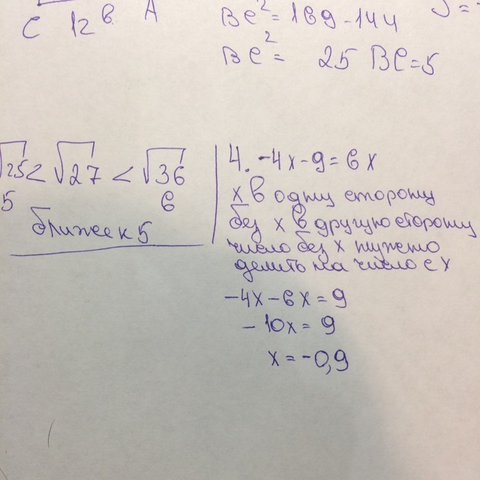 C 12 в A
BC² = 169 - 144
BC² = 25 BC = 5
S =
√25 < √27 < √36
5 6
ближе к 5
4. -4x - 9 = 6x
x в одну сторону
без x в другую сторону
число без x нужно
делить на число с x
-4x - 6x = 9
-10x = 9
x = -0,9